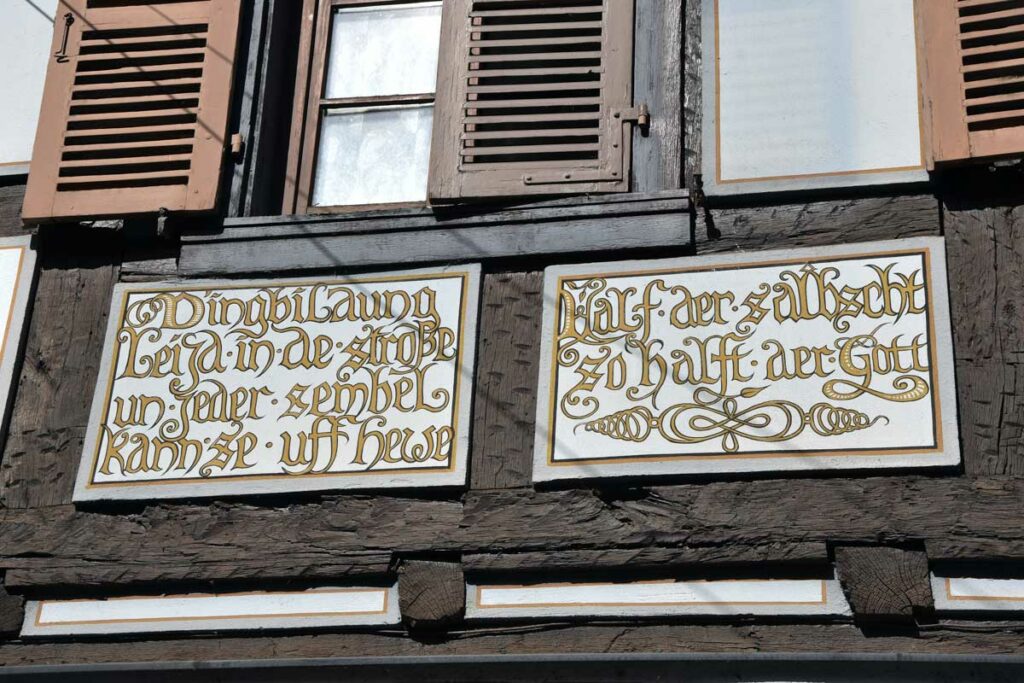 Dingbilaung
Leijd·in·de·stroße
un·jeder·sembel
kann·se·uff hewe
Half·der·sälbscht
so halft·der·Gott